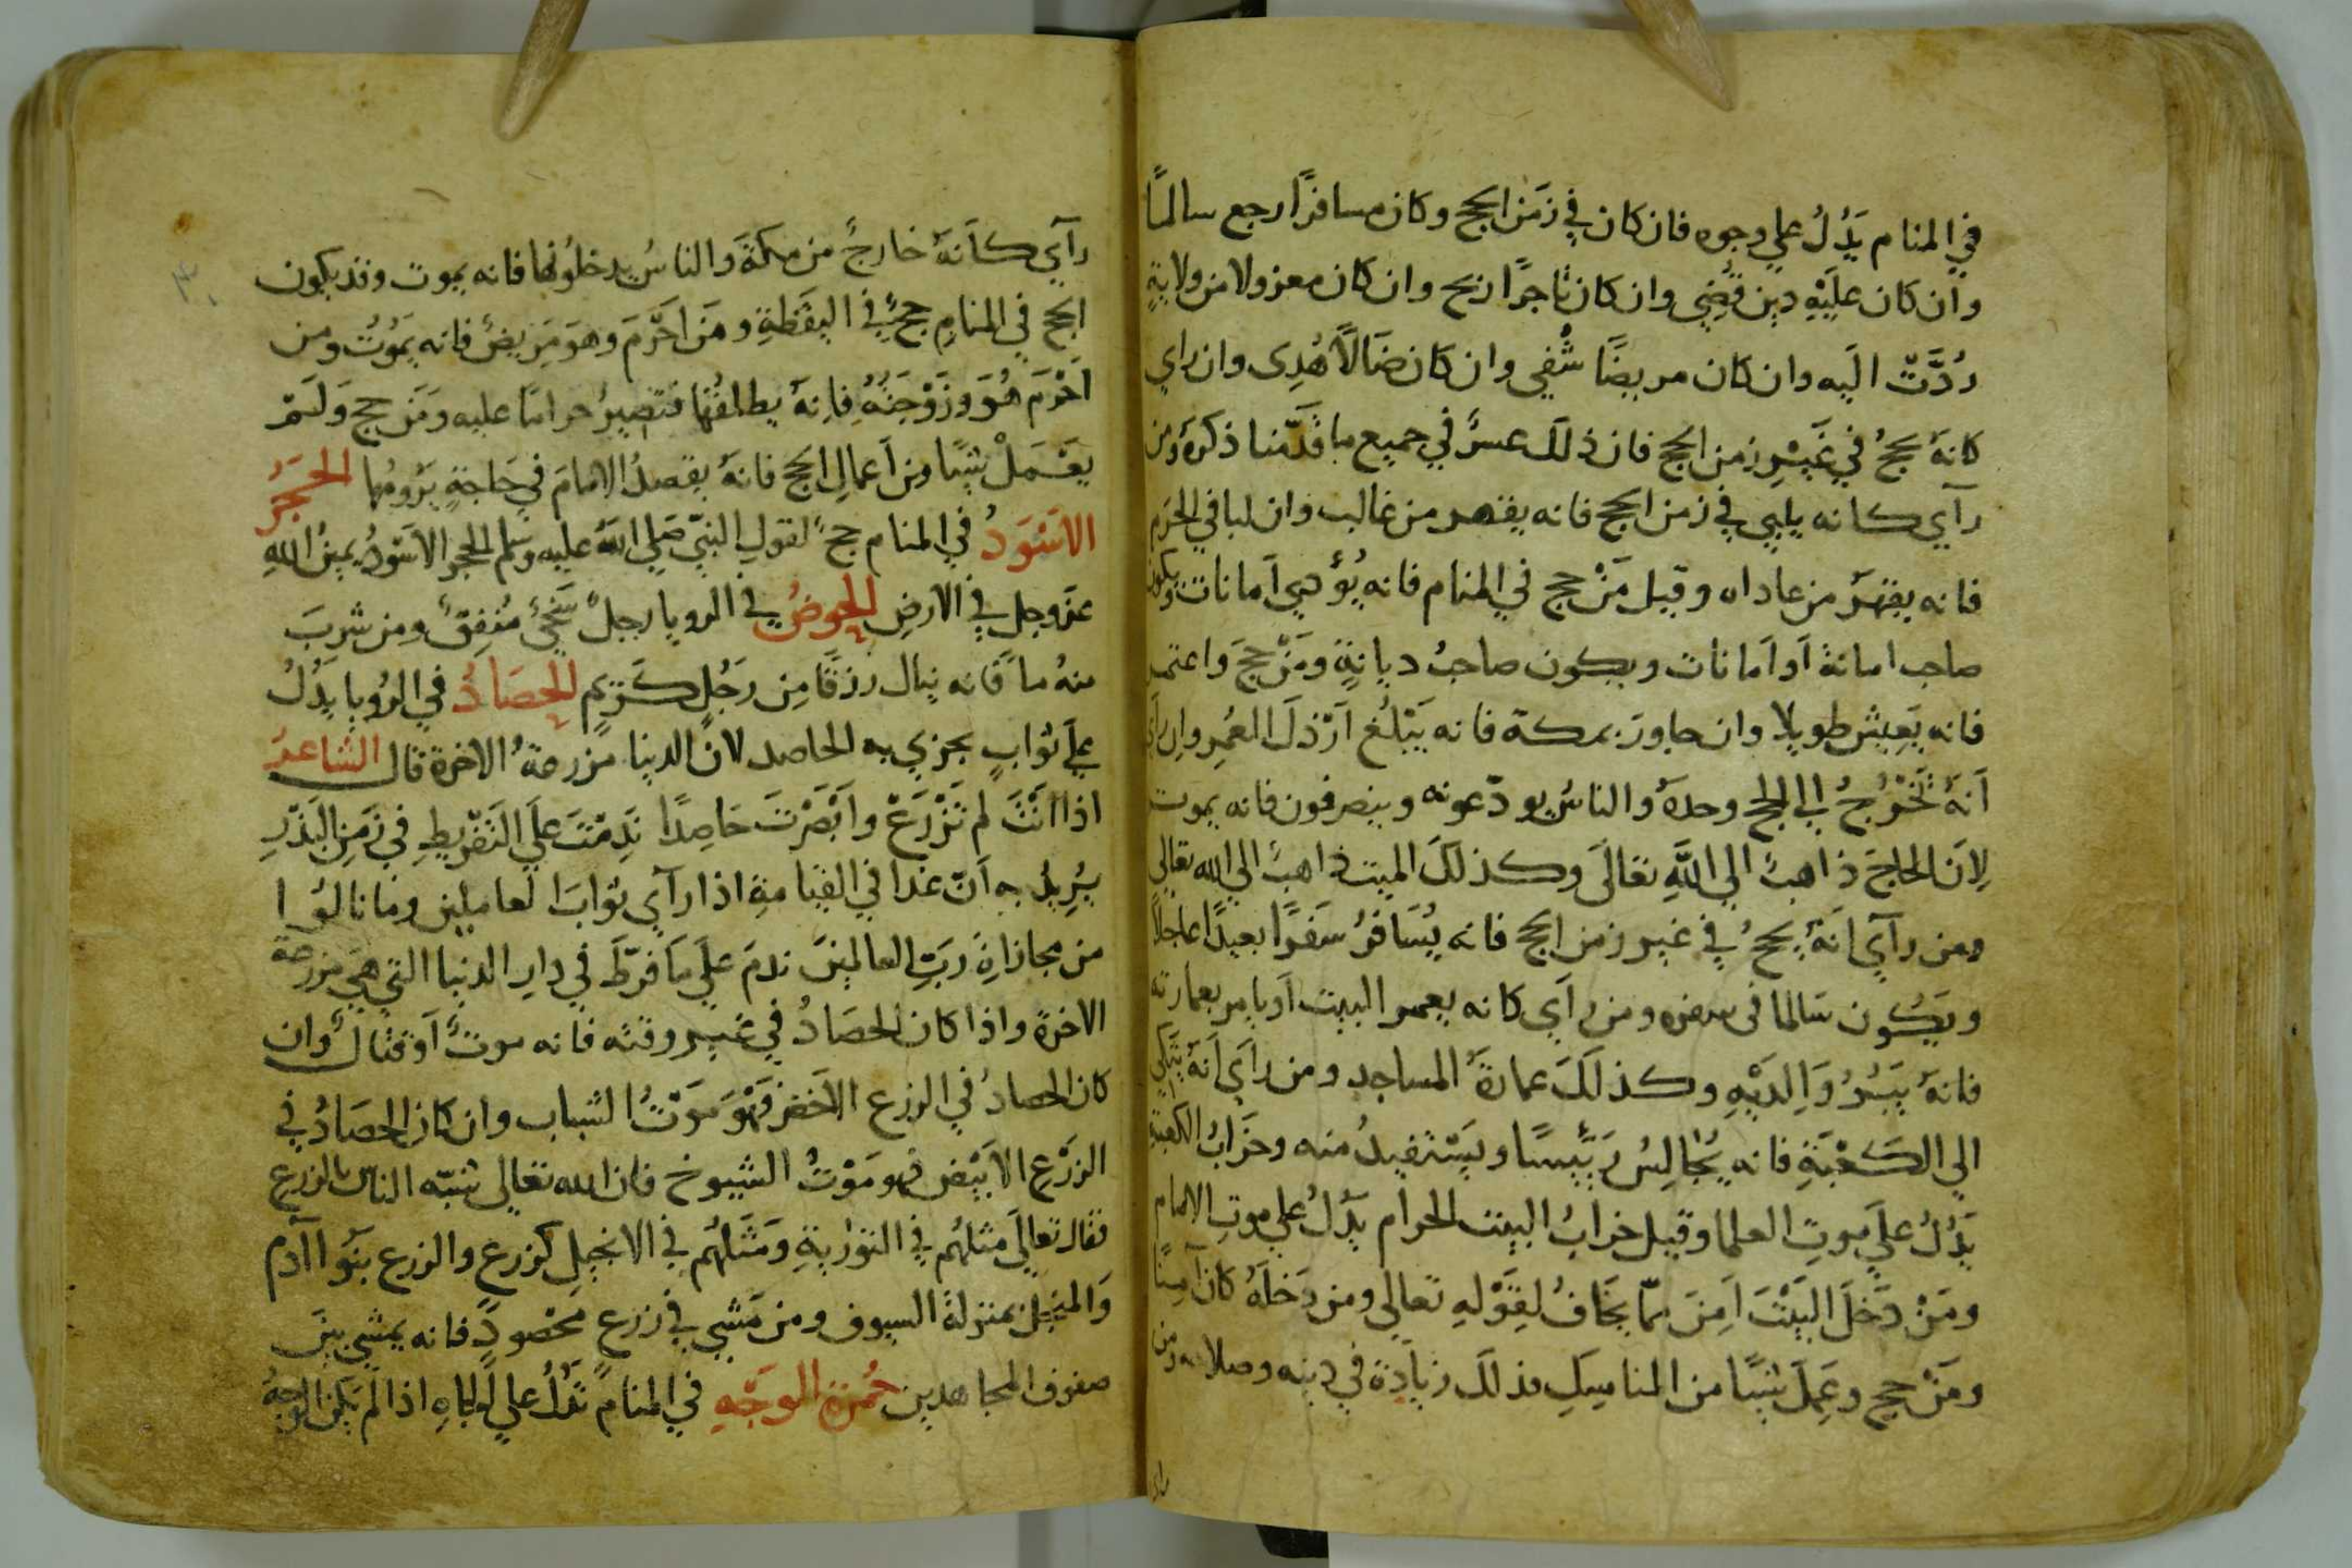 في المنام يَدُلُ علي وجوه فان كان في زمَن الحج وكان مسافرًا رجع سالمًا
وان كان عليَهِ دين قُضِي وان كان تاجرًا ربح وان كان معزولا من ولايةٍ
رُدَّتْ اليه وان كان مريضًا شُفِي وان كان ضَالاً هُدِى وان راي
كانهُ يحجُ في غَيْرِ زمن الحج فان ذلكَ عسرٌ في جميع ما قدّمنا ذكرهُ ومن
رآي كانه يلبي في زمن الحج فانه يقهر من غالب وان لبا في الحرم
فانه يقهرُ من عاداه وقيل مَنْ حج في المنام فانه يُؤدي اَمانات ويكون
صاحب امانة اَو اَمانات ويكون صاحبُ ديانةٍ ومَنْ حجَ واعتمر
فانه يَعِيش طويلا وان جاورَ بمكة فانه يَبْلُغ اَرْذلَ العُمِر وان رآي
اَنهُ تَخْرُجُ الي الحج وحدهُ والناسُ يودّعونه وينصرفون فانه يموت
لِاَن الحاجَ ذاهبٌ الي اللَّهِ تعالَي وكذلكَ الميت ذاهبٌ الي الله تعالي
ومن رآي انهُ يحجُ في غير زمن الحج فانه يُسَافرُ سَفرًا بعيدًا عاجلاً
ويكُون سَالما فى سفره ومن رآي كانه يعمر البيت اَو يامر بعمارته
فانهُ يَبَرُ وَالِديَهِ وكذلكَ عمارةُ المساجد ومن رآي اَنهُ يتكي
الي الكَعْبَةِ فانه يُجَالِسُ رَئيسًا ويَسْتفيدُ منه وخرَابُ الكعبة
يَدُلُ علَي موتِ العلما وقيل خرابُ البيت الحرام يَدُلُ علي موتِ الامام
ومَنْ دَخلَ البَيْتَ اَمِنَ ممّا يَخافُ لِقوْلهِ تعالي ومن دَخلَهُ كان آمِنًا
ومَنْ حج وعَمِلَ شيًا من المناسِكِ فذلكَ زيادَة في دينه وصلاحه ومن
رآي كاَنهُ خارجٌ من مكةَ والناسُ يدخلونها فانه يموت وقد يكون
الحج في المنامِ حجٌ في اليقَظةِ ومَن اَحَرَمَ وهوَ مَرِيضٌ فانه يَمُوتُ ومن
اَحْرَمَ هُوَ وزَوْجَتُهُ فاِنهُ يطلقُها فتصيرُ حرامًا عليه ومَن حج ولَم
يَعْمَلْ شيًا من اَعمالِ الحج فانهُ يقصدُ الامامَ في حَاجةٍ يَرُومُها الحَجَرُ
الاَسْوَدُ في المنام حجٌ لقولِ النبيِّ صَلي اللهُ عليه وسَلم الحجر الاَسْودُ يمينُ اللهِ
عزَ وجل في الارضِ الحوضُ في الرويا رجلٌ سَخيٌ مُنفِقٌ ومن شربَ
منهُ ماً فَانه ينال رزقًا مِن رَجُلٍ كَرِيمٍ الحصَادُ في الرُويا يَدُلُ
علَي ثوابٍ يجزي به الحاصد لانَ الدنيا مَزرعةُ الاخرة قال الشاعرُ
اذا انْتَ لم تَزْرَعْ واَبْصَرْتَ حَاصِدًا نَدِمْتَ علَي التَفْرِيطِ فِي زَمَنِ البَذْرِ
يُرِيدُ به اَنّ غدا في القيامةِ اذا رآي ثوابَ العاملين وما نالُوا
من مجازاةِ رَبِّ العالمِينَ ندمَ علَي مَا فَرّطَ في دارِ الدنيا التي هيَ مزرعة
الاخرة واذا كان الحصَادُ في غير وقته فانه موتٌ اَو قتالٌ وان
كان الحصادُ في الزرع الاَخضر فَهْوَ مَوْتُ الشباب وان كان الحصَادُ في
الزرْع الاَبْيض فهو مَوْتُ الشيوخ فان الله تعالي شبّه الناسَ بالزرع
فقال تعالَي مثلهُم في التوْراةِ ومَثَلهُم في الانجيلِ كزرع والزرع بَنُوا آدم
وَالمنجل بمنزلة السيوف ومن مَشي في زرع محصودٍ فانه يمشي بينَ
صفوف المجاهدين حُمْرة الوَجْهِ في المنام تَدُلُ علي الجاهِ اذا لَم يكن الوجهُ